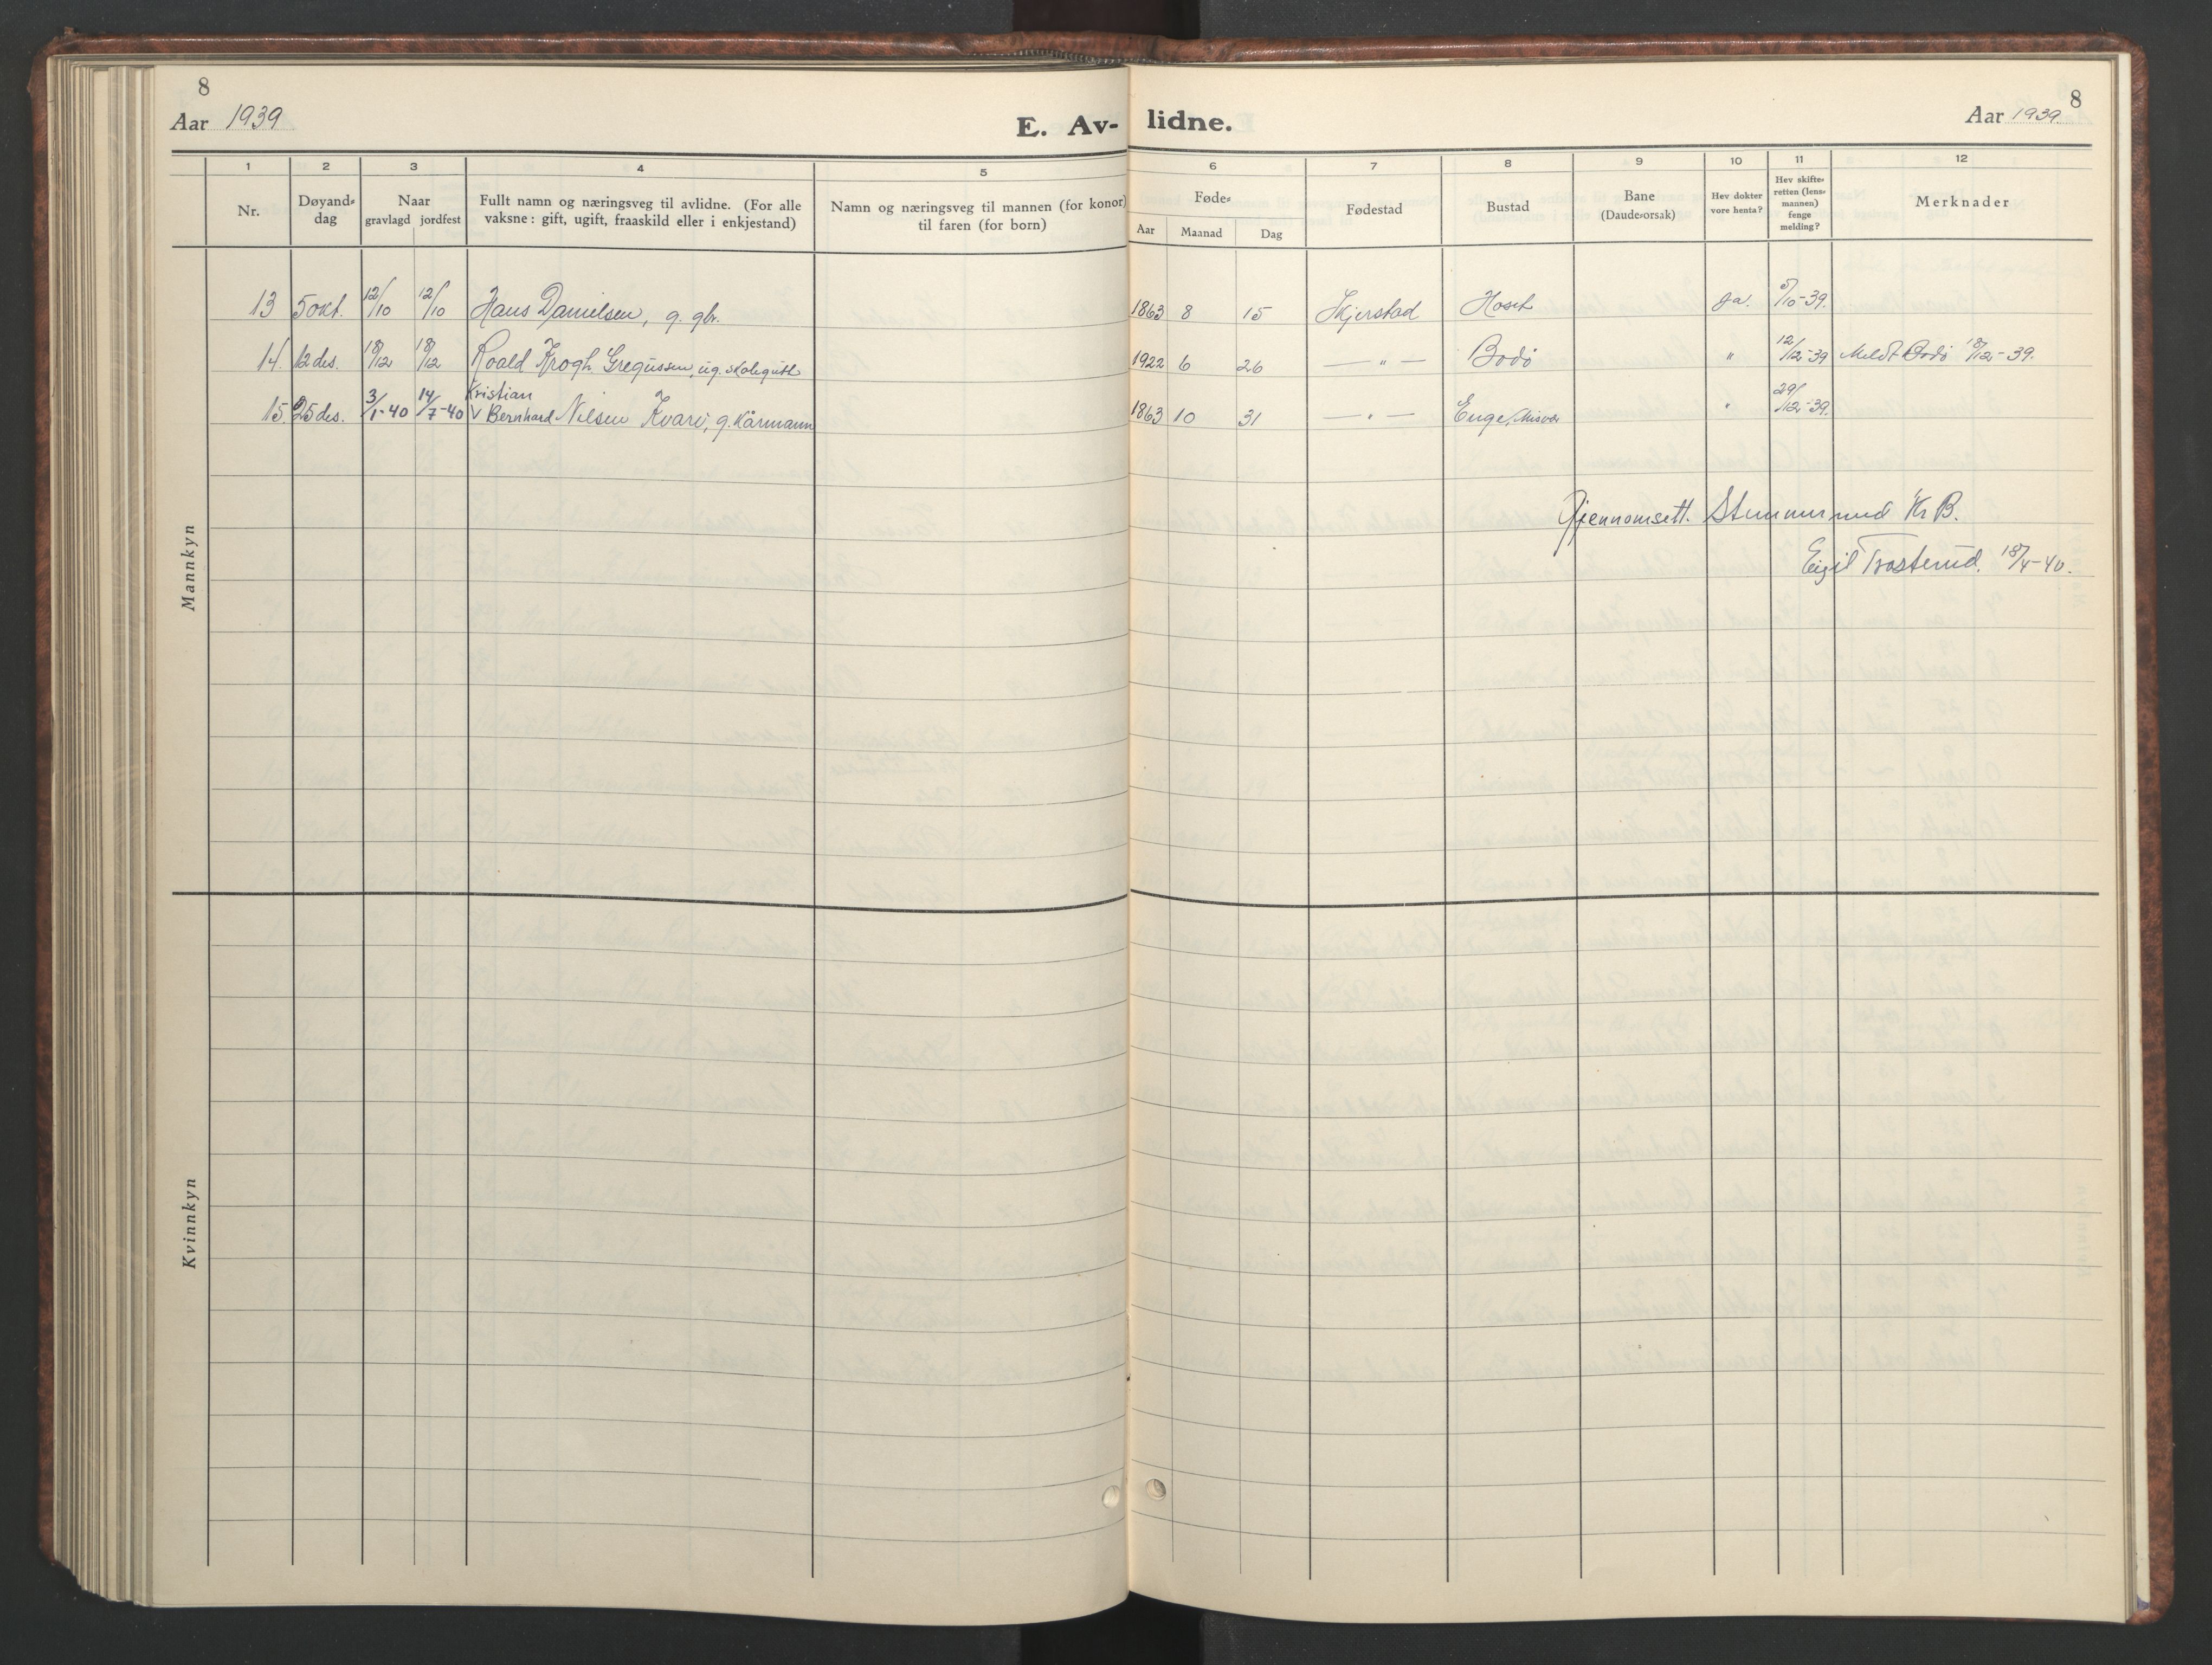 8
Aar 1939
E. Av-
lidne.
8
Aar 1939.
1 2 3 4 5 6 7 8 9 10 11 12
Nr.
Døyand-
dag
Naar
gravlagd jordfest
Fullt namn og næringsveg til avlidne. (For alle
vaksne: gift, ugift, fraaskild eller i enkjestand)
Namn og næringsveg til mannen (for konor)
til faren (for born)
Føde-
Aar Maanad Dag
Fødestad
Bustad
Bane
(Daude-orsak)
Hev dokter
vore henta?
Hev skifte-
retten (lens-
mannen)
fenge
melding?
Merknader
13 5 okt. 12/10 12/10 Hans Danielsen, g. gbr. 1863 8 15 Skjerstad Hoset Ja. 5/10-39.
14. 12 des. 18/12 18/12 Roald Krogh Gregussen, ug. skolegutt 1922 6 26 — " — Bodö " 12/12-39 Meldt Bodö 18/12-39.
Kristian
15. 25 des. 3/1-40 14/7-40 V Bernhard Nilsen Kvarv, g. kårmann 1863 10 31 — " — Enge, Misvær " 29/12-39.
Gjennomsett. Kr B.
Eigil Trosterud. 18/4-40.
Mannkyn
Kvinnkyn